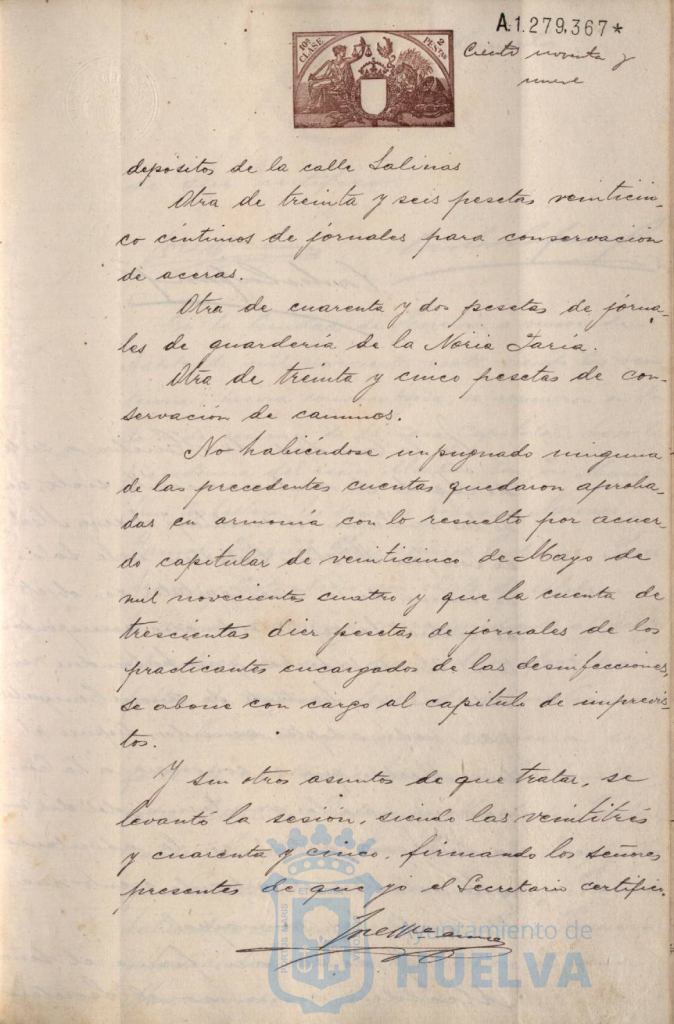 A.1.279,367*
10ª CLASE
2 PESTAS
Ciento noventa y
nueve
depósitos de la calle Salinas
Otra de treinta y seis pesetas veinticin-
co céntimos de jornales para conservación
de aceras.
Otra de cuarenta y dos pesetas de jorna-
les de guardería de la Noria Faría.
Otra de treinta y cinco pesetas de con-
servación de caminos.
No habiéndose impugnado ninguna
de las precedentes cuentas quedaron aproba-
das en armonía con lo resuelto por acuer-
do capitular de veinticinco de Mayo de
mil novecientos cuatro y que la cuenta de
trescientas diez pesetas de jornales de los
practicantes encargados de las desinfecciones,
se abone con cargo al capítulo de imprevis-
tos.
Y sin otros asuntos de que tratar, se
levantó la sesión, siendo las veintitrés
y cuarenta y cinco, firmando los señores
presentes de que yo el Secretario certifico.
Ayuntamiento de
HUELVA